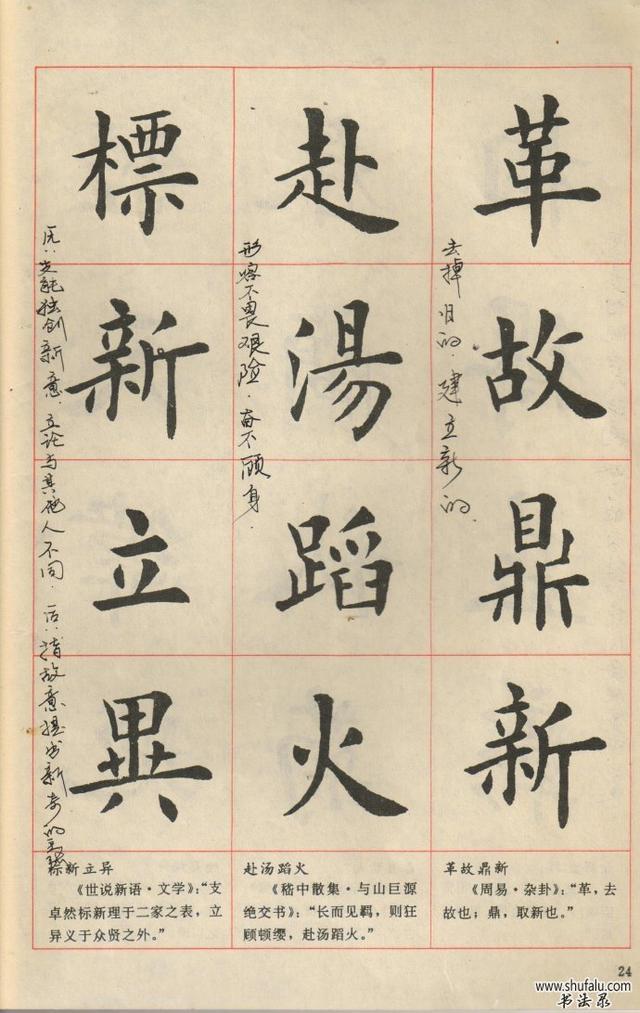 革故鼎新
去掉旧的.建立新的.
革故鼎新
《周易·杂卦》:“革,去
故也;鼎,取新也。”
赴湯蹈火
形容不畏艰险.奋不顾身.
赴汤蹈火
《嵇中散集·与山巨源
绝交书》:“长而见羁,则狂
顾顿缨,赴汤蹈火。”
標新立異
能独创新意.立论与其他人不同.后指故意提出新奇的主张
标新立异
《世说新语·文学》:“支
卓然标新理于二家之表,立
异义于众贤之外。”
24
www.shufalu.com
书法录